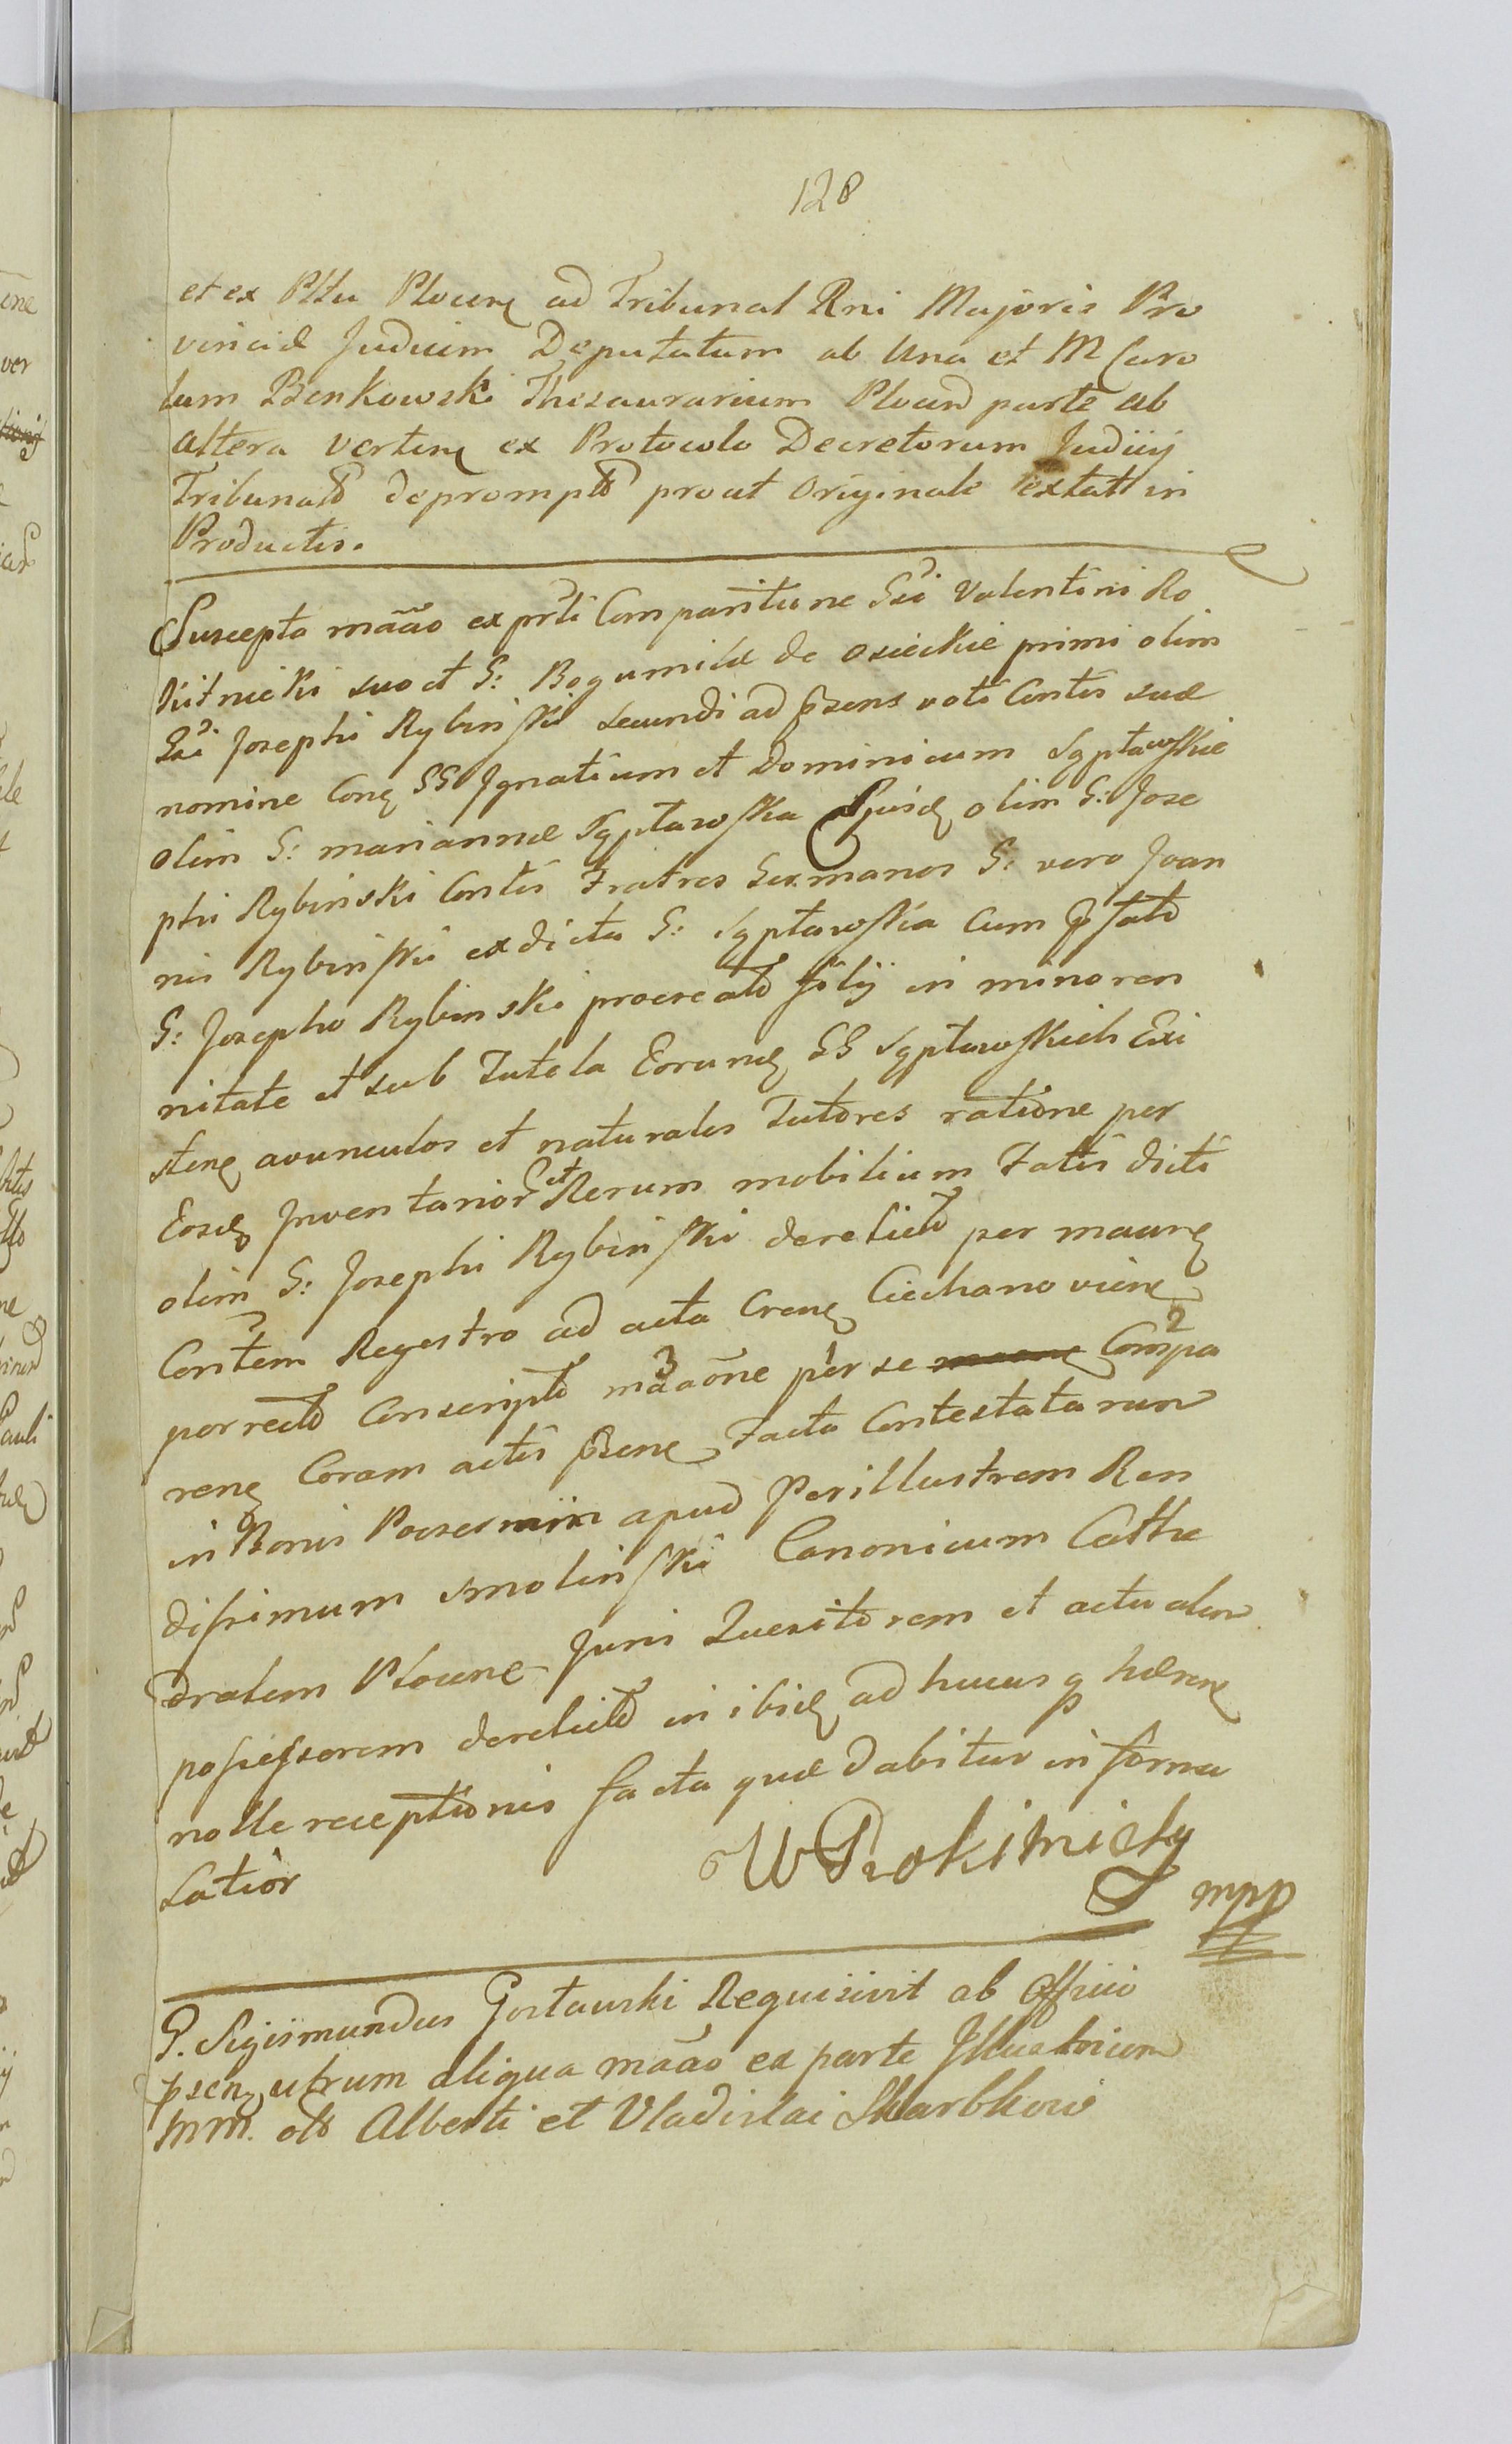 128
et ex Pttu Plocen ad Tribunal Rni Majoris Pro
vinciæ Judicem Deputatum ab Una et M Caro
lum Benkowski Thesaurarium Plocen parte ab
altera verten ex Protocolo Decretorum Judicij
Tribunalis deprompto prout Originale extat in
Productis.
Suscepta maão ex prti Comparitione Gsi Valentini Ro
kitnicki suo et G: Bogumilæ de Osieckie primi olim
Gsi Josephi Rybinski secundi ad prsens voti Contis suæ
nomine Con GG Ignatium et Dominicum Sgptowskie
olim G: mariannæ Sgptawska ejusd olim G: Jose
phi Rybinski Contis Fratres Germanos G: vero Joan
nis Rybinski ex dicta G: Sgptawska Cum pfato
G: Josepho Rybinski procreati filij in minoren
nitate et sub Tutela Eorund GG Sgptawskich Exi
sten avunculos et naturales Tutores ratione per
Eosd Inventarior et Rerum mobilium Fatis dicti
olim G: Josephi Rybinski derelict per maun
Contem Regestro ad acta Cren Ciechanovien
porrecto Conscript maãone per se Compa
3 1 2
ren Coram actis prsen Facta Contestatarum
in Bonis apud Perillustrem Ren
disimum Smolinski Canonicum Cathe
dralem Plocen Juris Quesitorem et actualem
possessorem derelict in ibid ad hucusq hæren
nolle receptionis facta quæ dabitur in forma
Latior
W Rokitnicky
mpp
G. Sigismundus Gostawski Requisivit ab Officio
psen utrum aliqua maão ex parte Illustrium
MM. olo Alberti et Vladislai Skarbkow